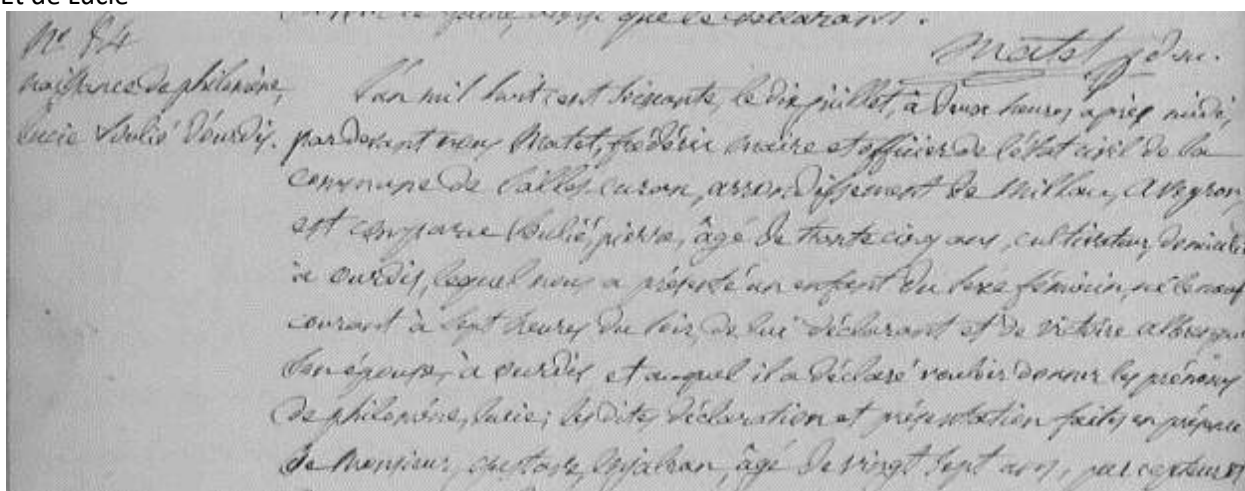 Et de Lucie
que le déclarant.
N° 84
Matet
naissance de philomène,
lucie Soulié d'ourdis.
L'an mil huit cent soixante, le dix juillet, à deux heures après midi,
pardevant nous Matet, frédéric maire et officier de l'état civil de la
commune de Salles curan, arrondissement de Millau, Aveyron,
est comparu Soulié, pierre, âgé de trente cinq ans, cultivateur, domicilié
à ourdis, lequel nous a présenté un enfant du sexe féminin, né le neuf
courant à sept heures du soir, de lui déclarant et de victoire
son épouse, à ourdis, et auquel il a déclaré vouloir donner les prénoms
de philomène, lucie; lesdites déclaration et présentation faites en présence
de Monsieur, gustave, âgé de vingt sept ans, percepteur